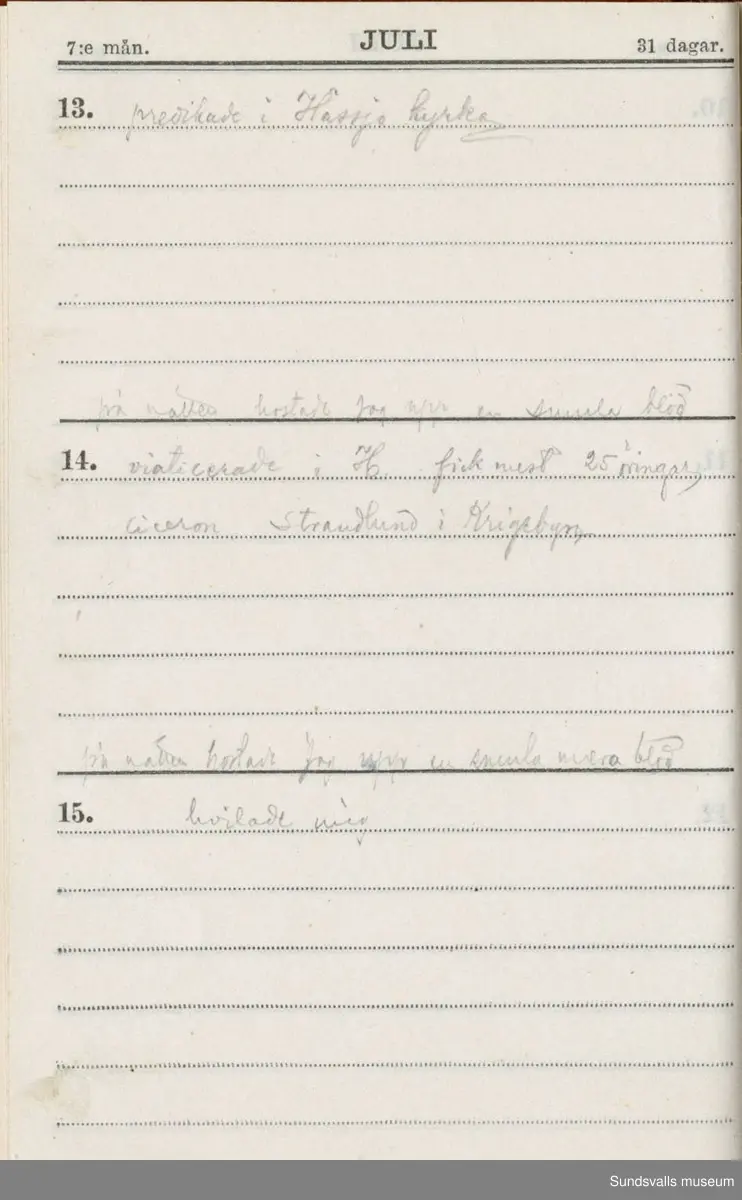 7:e mån. JULI 31 dagar.
13. predikade i Hässjö kyrka
på natten hostade jag upp en smula blod
14. viaticerade i H. fick mest 25 öringar,
ciceron Strandlund i Krigsbyn
på natten hostade jag upp en smula mera blod
15. hvilade mig
Sundsvalls museum